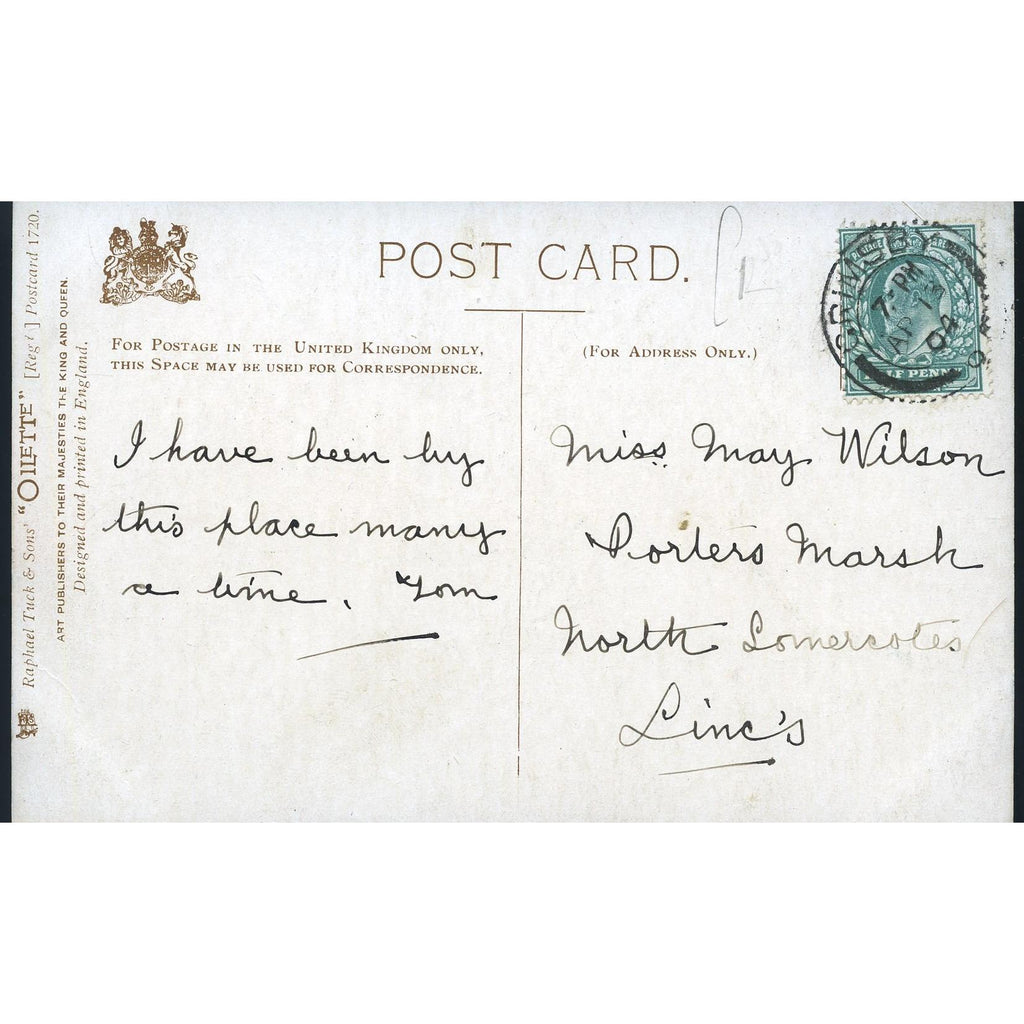 Raphael Tuck & Sons' "OILETTE" [Regd.] Postcard 1720.
ART PUBLISHERS TO THEIR MAJESTIES THE KING AND QUEEN.
Designed and printed in England.
POST CARD.
FOR POSTAGE IN THE UNITED KINGDOM ONLY,
THIS SPACE MAY BE USED FOR CORRESPONDENCE.
(FOR ADDRESS ONLY.)
GRIMSBY
7- PM
AP 13
04
I have been by
this place many
a time. Tom
Miss May Wilson
Porters Marsh
North Somercotes
Linc's